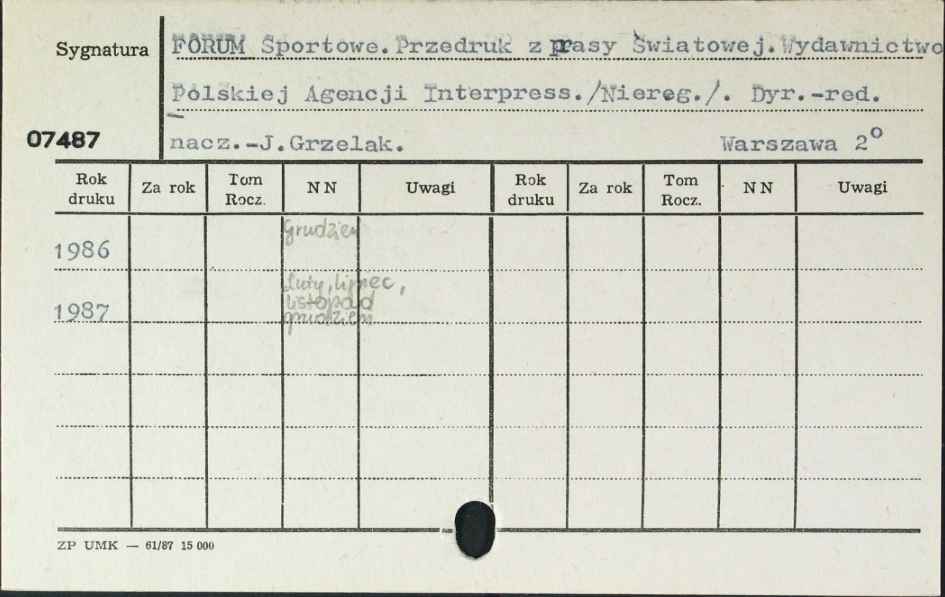 Sygnatura FORUM Sportowe.Przedruk z prasy Światowej.Wydawnictwo
Polskiej Agencji Interpress./Niereg./. Dyr.-red.
07487 nacz.-J.Grzelak. Warszawa 2°
Rok druku Za rok Tom Rocz. NN Uwagi Rok druku Za rok Tom Rocz. NN Uwagi
1986 Grudzień
1987 Luty, lipiec,
listopad
grudzień
ZP UMK — 61/87 15 000